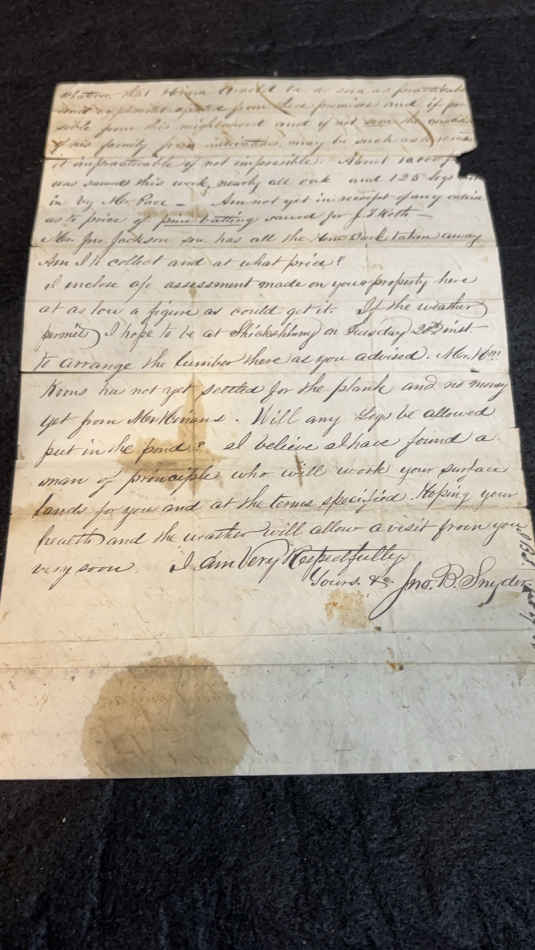 that should be as soon as practicable
and if pos-
sible from this neighborhood and if not save the
of his family from may be such as
it impracticable if not impossible. About 10,000 ft
was sawed this week, nearly all oak and 125 logs
in by Mr. Pace - Am not yet in receipt of any
as to price of pine batting sawed for J. S. Keith -
Mr. Jno. Jackson son has all the taken away
Am I to collect and at what price?
I enclose a/c assessment made on your property here
at as low a figure as could get it. If the weather
permit I hope to be at Shickshinny on Tuesday 20th inst
to arrange the lumber there as you advised. Mr. Wm
Kerns has not yet settled for the plank and no money
yet from Mr. . Will any logs be allowed
put in the pond? I believe I have found a
man of principle who will work your surface
lands for you and at the terms specified. Hoping your
health and the weather will allow a visit from you
very soon. I am Very Respectfully
Yours &c Jno. B. Snyder